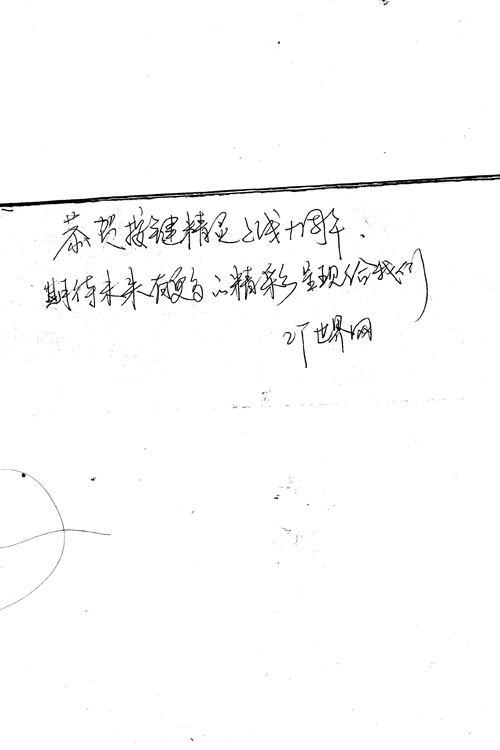 恭贺按键精灵上线十周年.
期待未来有更多的精彩呈现给我们
IT世界网